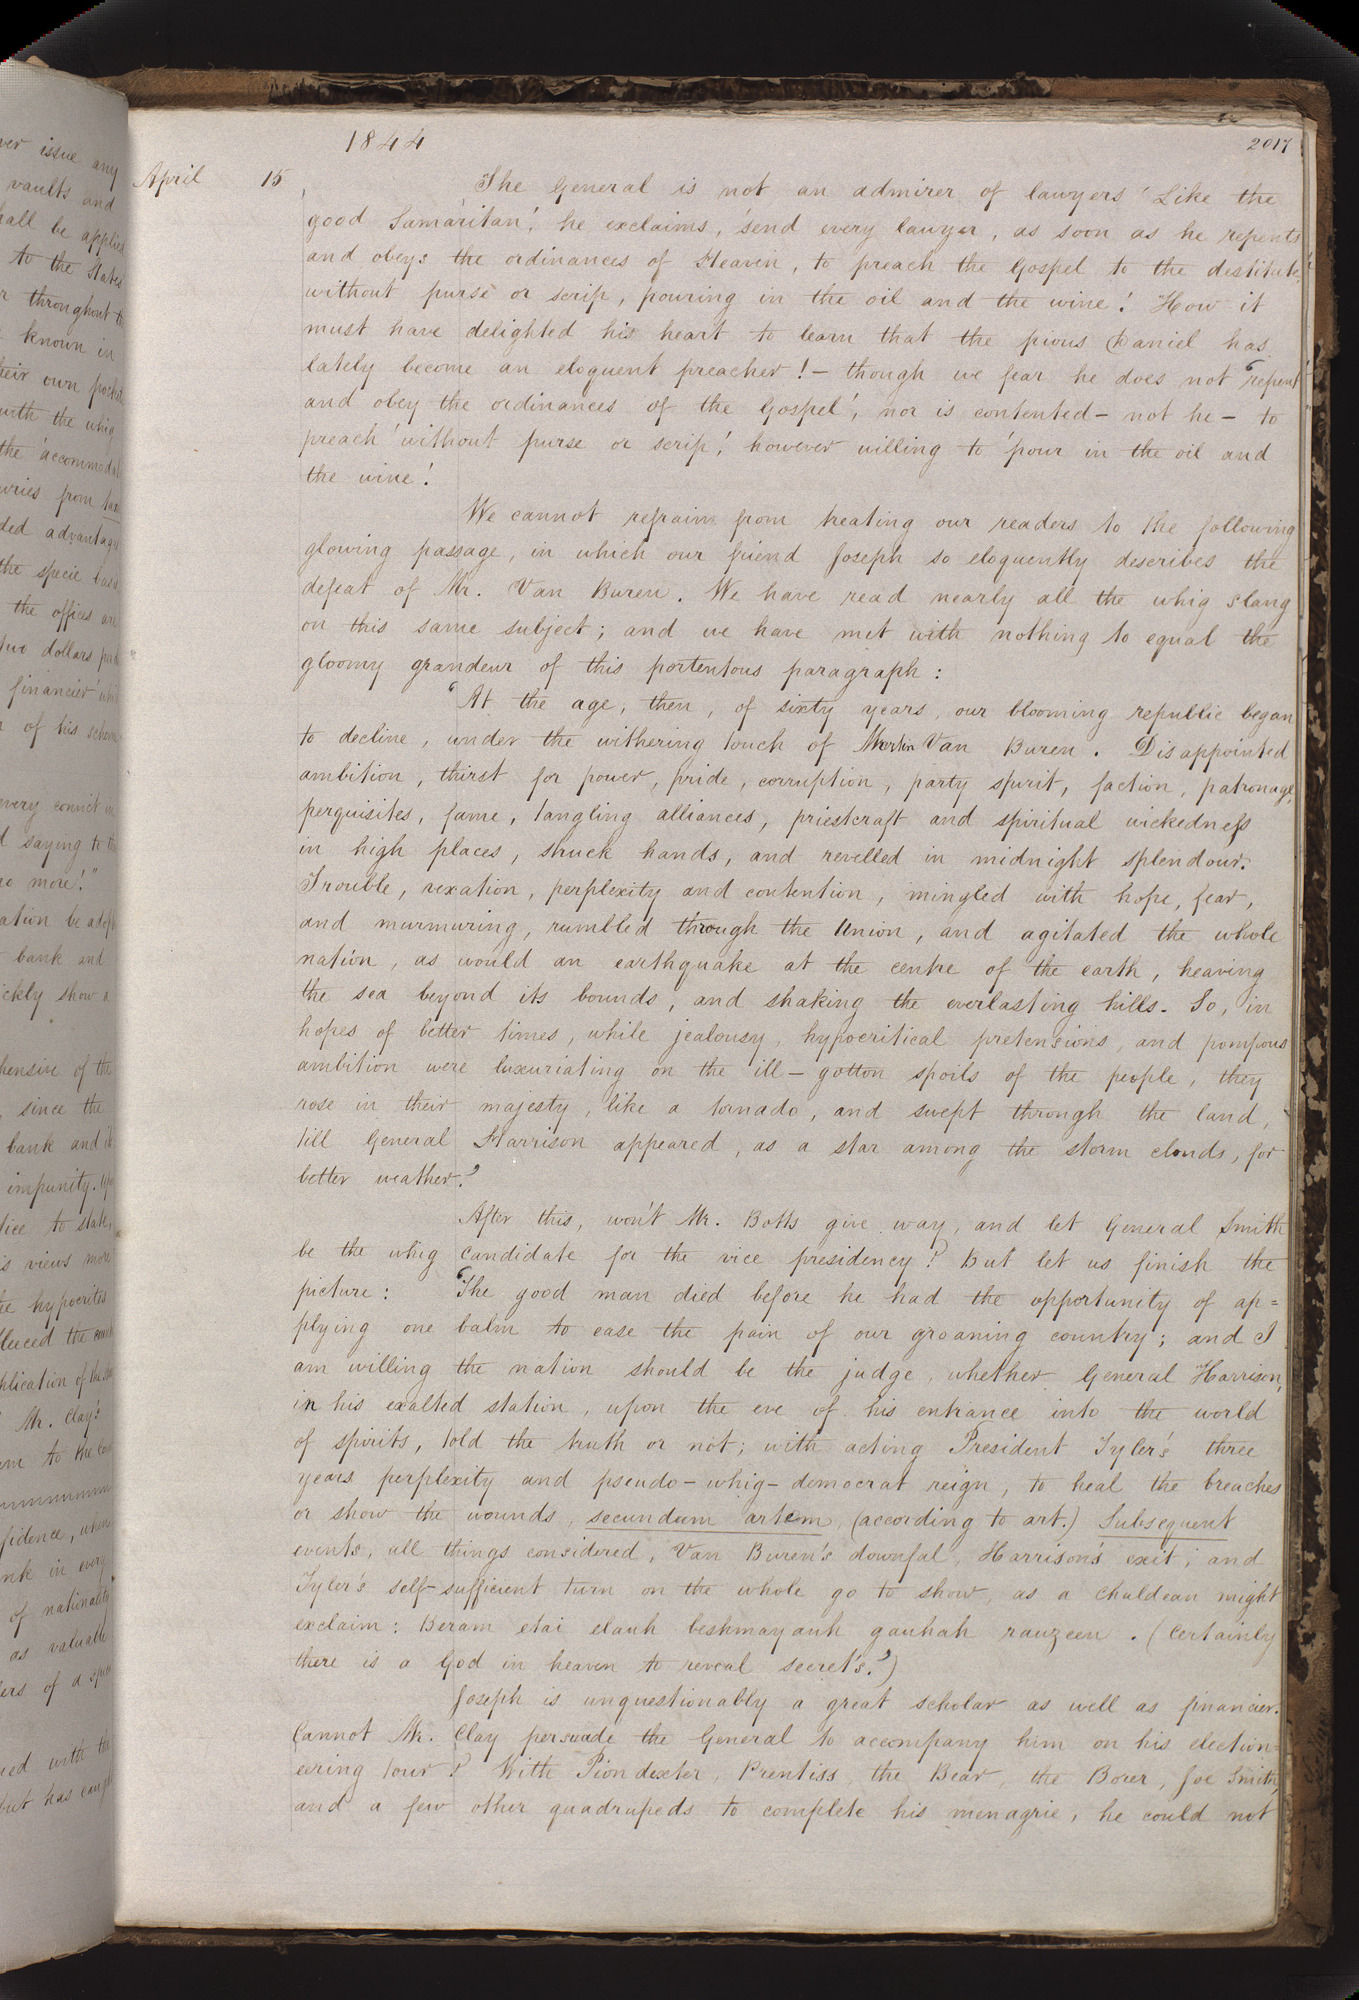 1844
2017
April 15
The General is not an admirer of lawyers 'Like the
good Samaritan', he exclaims, 'send every lawyer, as soon as he repents
and obeys the ordinances of Heaven, to preach the Gospel to the destitute,
without purse or scrip, pouring in the oil and the wine! How it
must have delighted his heart to learn that the pious Daniel has
lately become an eloquent preacher! — though we fear he does not 'repent
and obey the ordinances of the Gospel', nor is contented — not he — to
preach 'without purse or scrip,' however willing to 'pour in the oil and
the wine!'
We cannot refrain from treating our readers to the following
glowing passage, in which our friend Joseph so eloquently describes the
defeat of Mr. Van Buren. We have read nearly all the whig slang
on this same subject; and we have met with nothing to equal the
gloomy grandeur of this portentous paragraph:
'At the age, then, of sixty years, our blooming republic began
to decline, under the withering touch of Martin Van Buren. Disappointed
ambition, thirst for power, pride, corruption, party spirit, faction, patronage,
perquisites, fame, tangling alliances, priestcraft and spiritual wickedness
in high places, struck hands, and revelled in midnight splendour.
Trouble, vexation, perplexity and contention, mingled with hope, fear,
and murmuring, rumbled through the Union, and agitated the whole
nation, as would an earthquake at the centre of the earth, heaving
the sea beyond its bounds, and shaking the everlasting hills. So, in
hopes of better times, while jealousy, hypocritical pretensions, and pompous
ambition were luxuriating on the ill-gotton spoils of the people, they
rose in their majesty, like a tornado, and swept through the land,
till General Harrison appeared, as a star among the storm clouds, for
better weather.'
After this, won't Mr. Botts give way, and let General Smith
be the whig candidate for the vice presidency? But let us finish the
picture: 'The good man died before he had the opportunity of ap=
plying one balm to ease the pain of our groaning country; and I
am willing the nation should be the judge, whether General Harrison,
in his exalted station, upon the eve of his entrance into the world
of spirits, told the truth or not; with acting President Tyler's three
years perplexity and pseudo-whig-democrat reign, to heal the breaches
or show the wounds, secundum artem, (according to art.) Subsequent
events, all things considered, Van Buren's downfal, Harrison's exit, and
Tyler's self-sufficient turn on the whole go to show, as a Chaldean might
exclaim: Beram etai elauh beshmayauh gauhah rauzeen. (Certainly
there is a God in heaven to reveal secret's.')
Joseph is unquestionably a great scholar as well as financier.
Cannot Mr. Clay persuade the General to accompany him on his election=
eering tour? With Piondexter, Prentiss, the Bear, the Boxer, Joe Smith,
and a few other quadrupeds to complete his menagrie, he could not